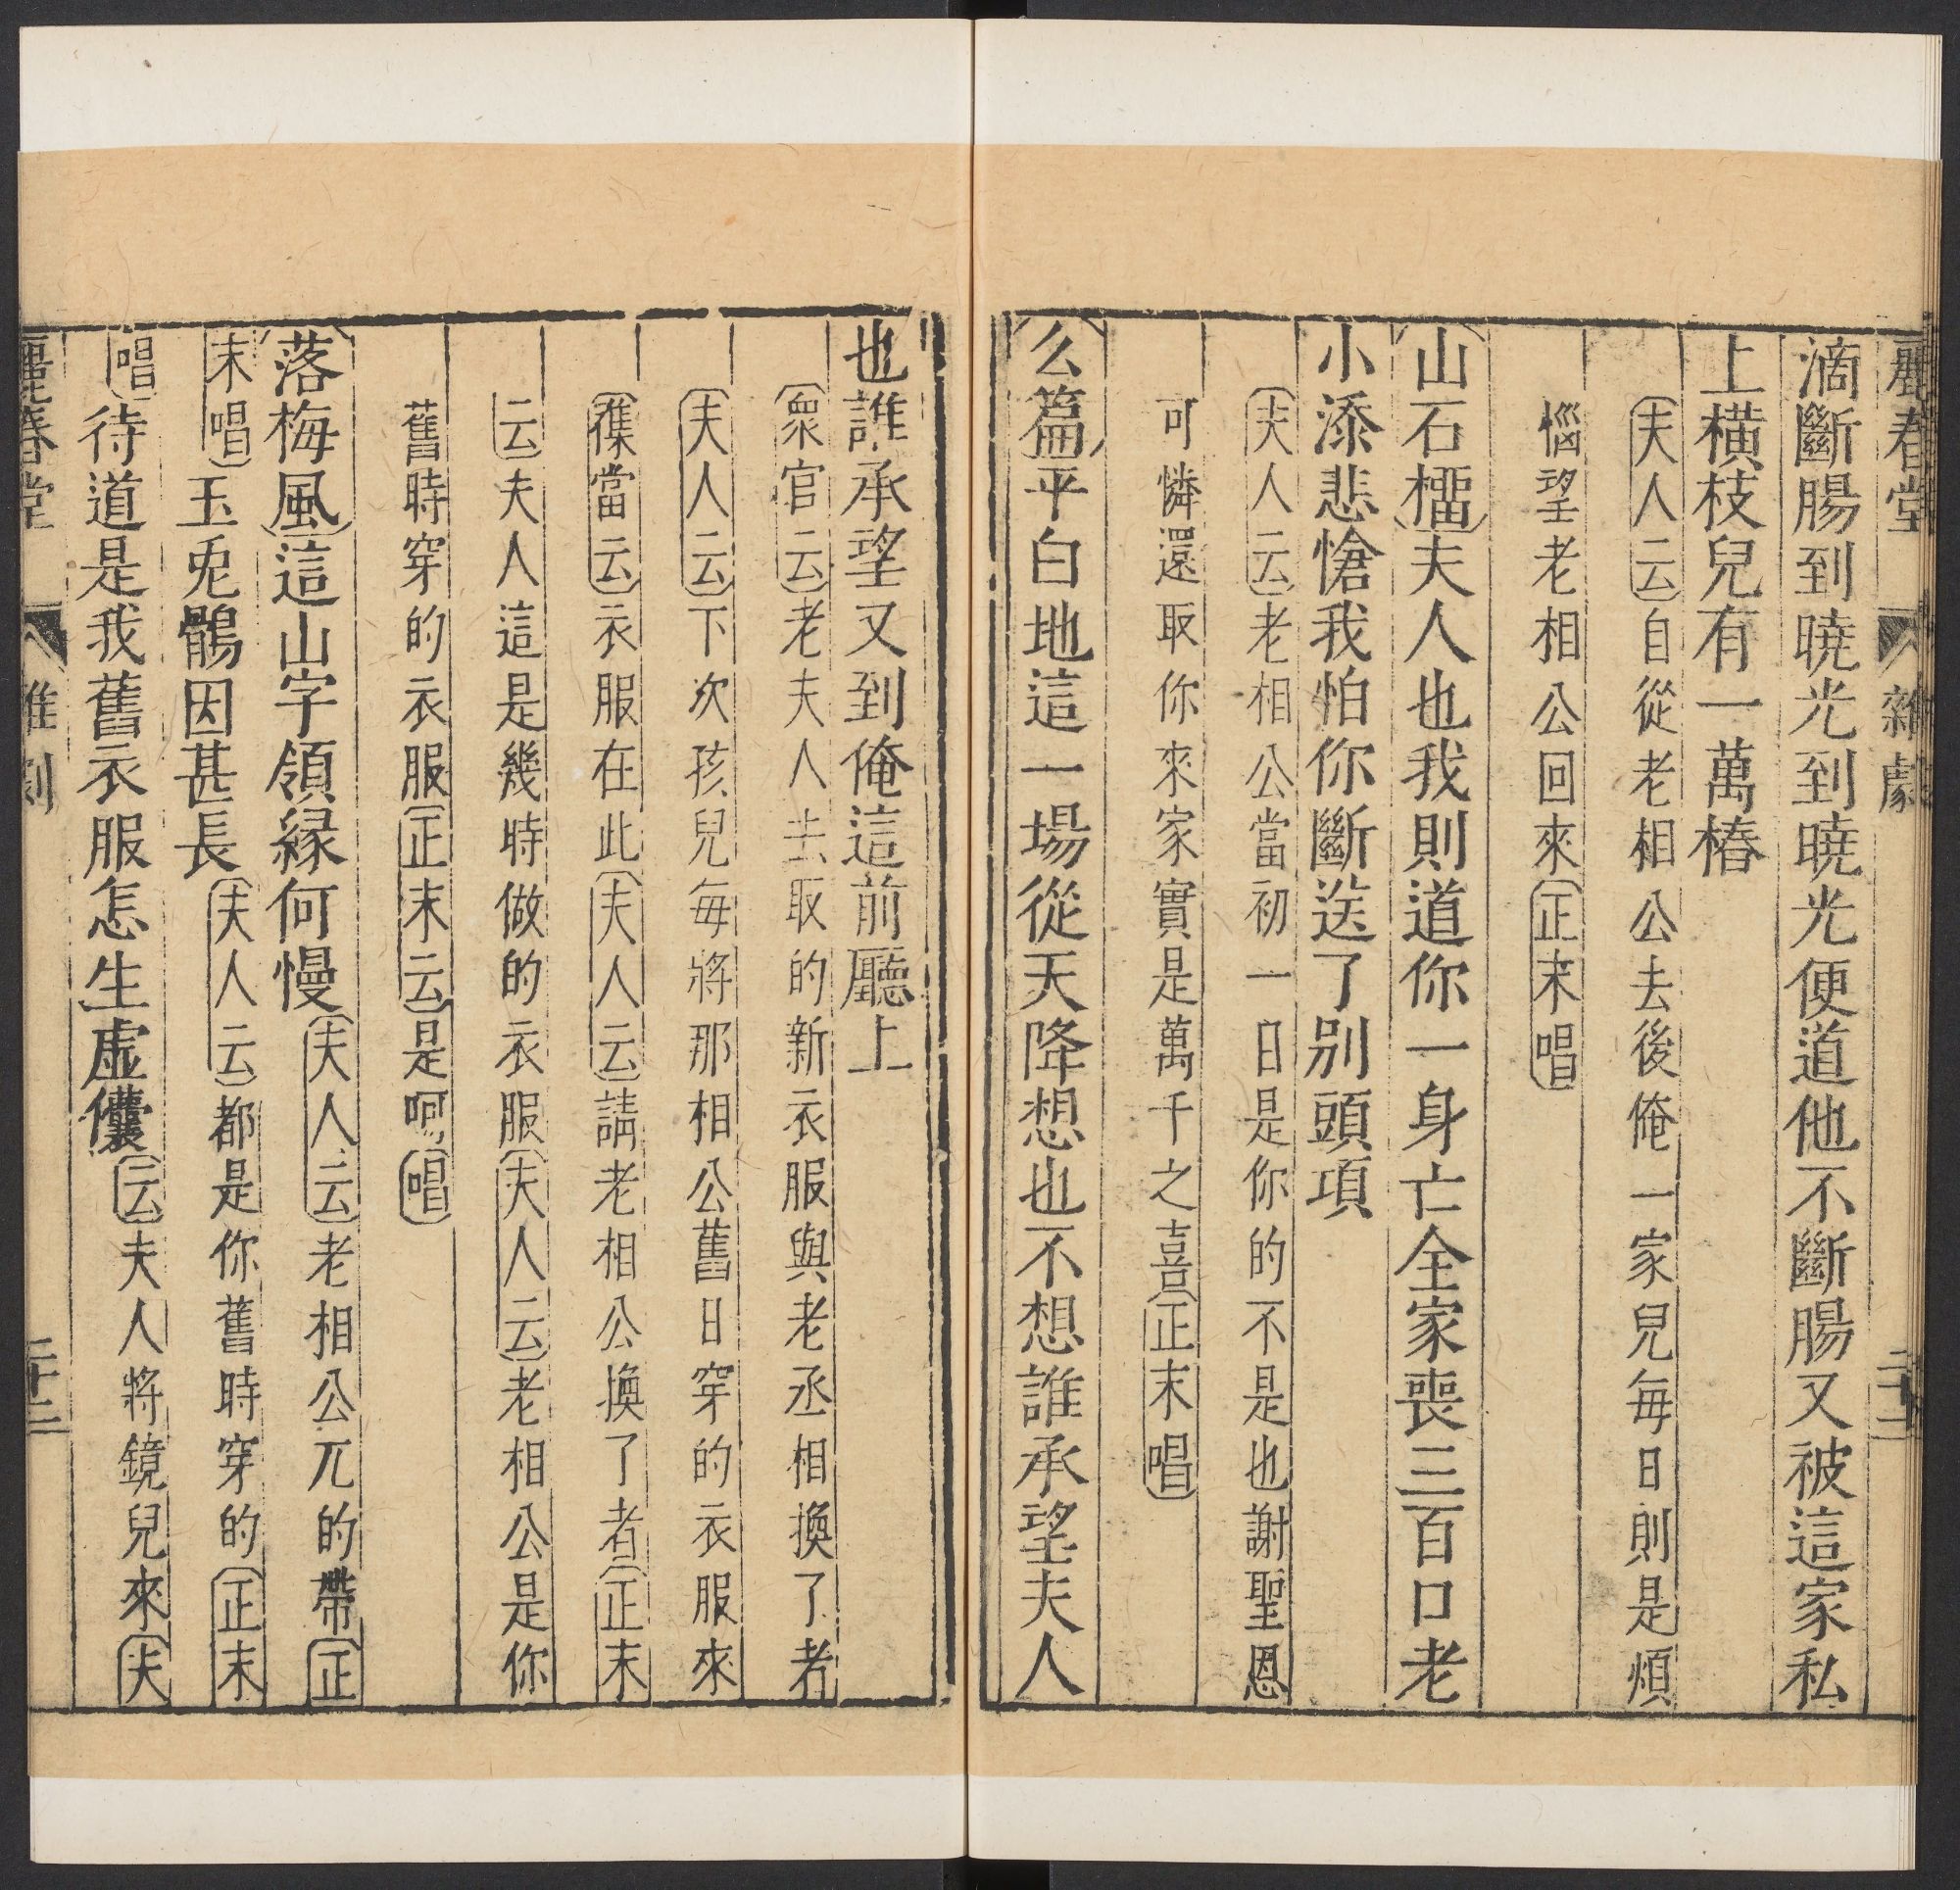 麗春堂 雜劇 二十二
滴斷腸到曉光到曉光便道他不斷腸又被這家私
上橫枝兒有一萬樁
(夫人云)自從老相公去後俺一家兒每日則是煩
惱望老相公回來(正末唱)
(山石榴)夫人也我則道你一身亡全家喪三百口老
小添悲愴我怕你斷送了別頭項
(夫人云)老相公當初一日是你的不是也謝聖恩
可憐還取你來家實是萬千之喜(正末唱)
(么篇)平白地這一場從天降想也不想誰承望夫人
也誰承望又到俺這前廳上
(衆官云)老夫人去取的新衣服與老丞相換了者
(夫人云)下次孩兒每將那相公舊日穿的衣服來
(雜當云)衣服在此(夫人云)請老相公換了者(正末
云)夫人這是幾時做的衣服(夫人云)老相公是你
舊時穿的衣服(正末云)是呵(唱)
(落梅風)這山字領緣何慢(夫人云)老相公兀的帶(正
末唱)玉兎鶻因甚長(夫人云)都是你舊時穿的(正末
唱)待道是我舊衣服怎生虛儾(云)夫人將鏡兒來(夫
麗春堂 雜劇 二十二